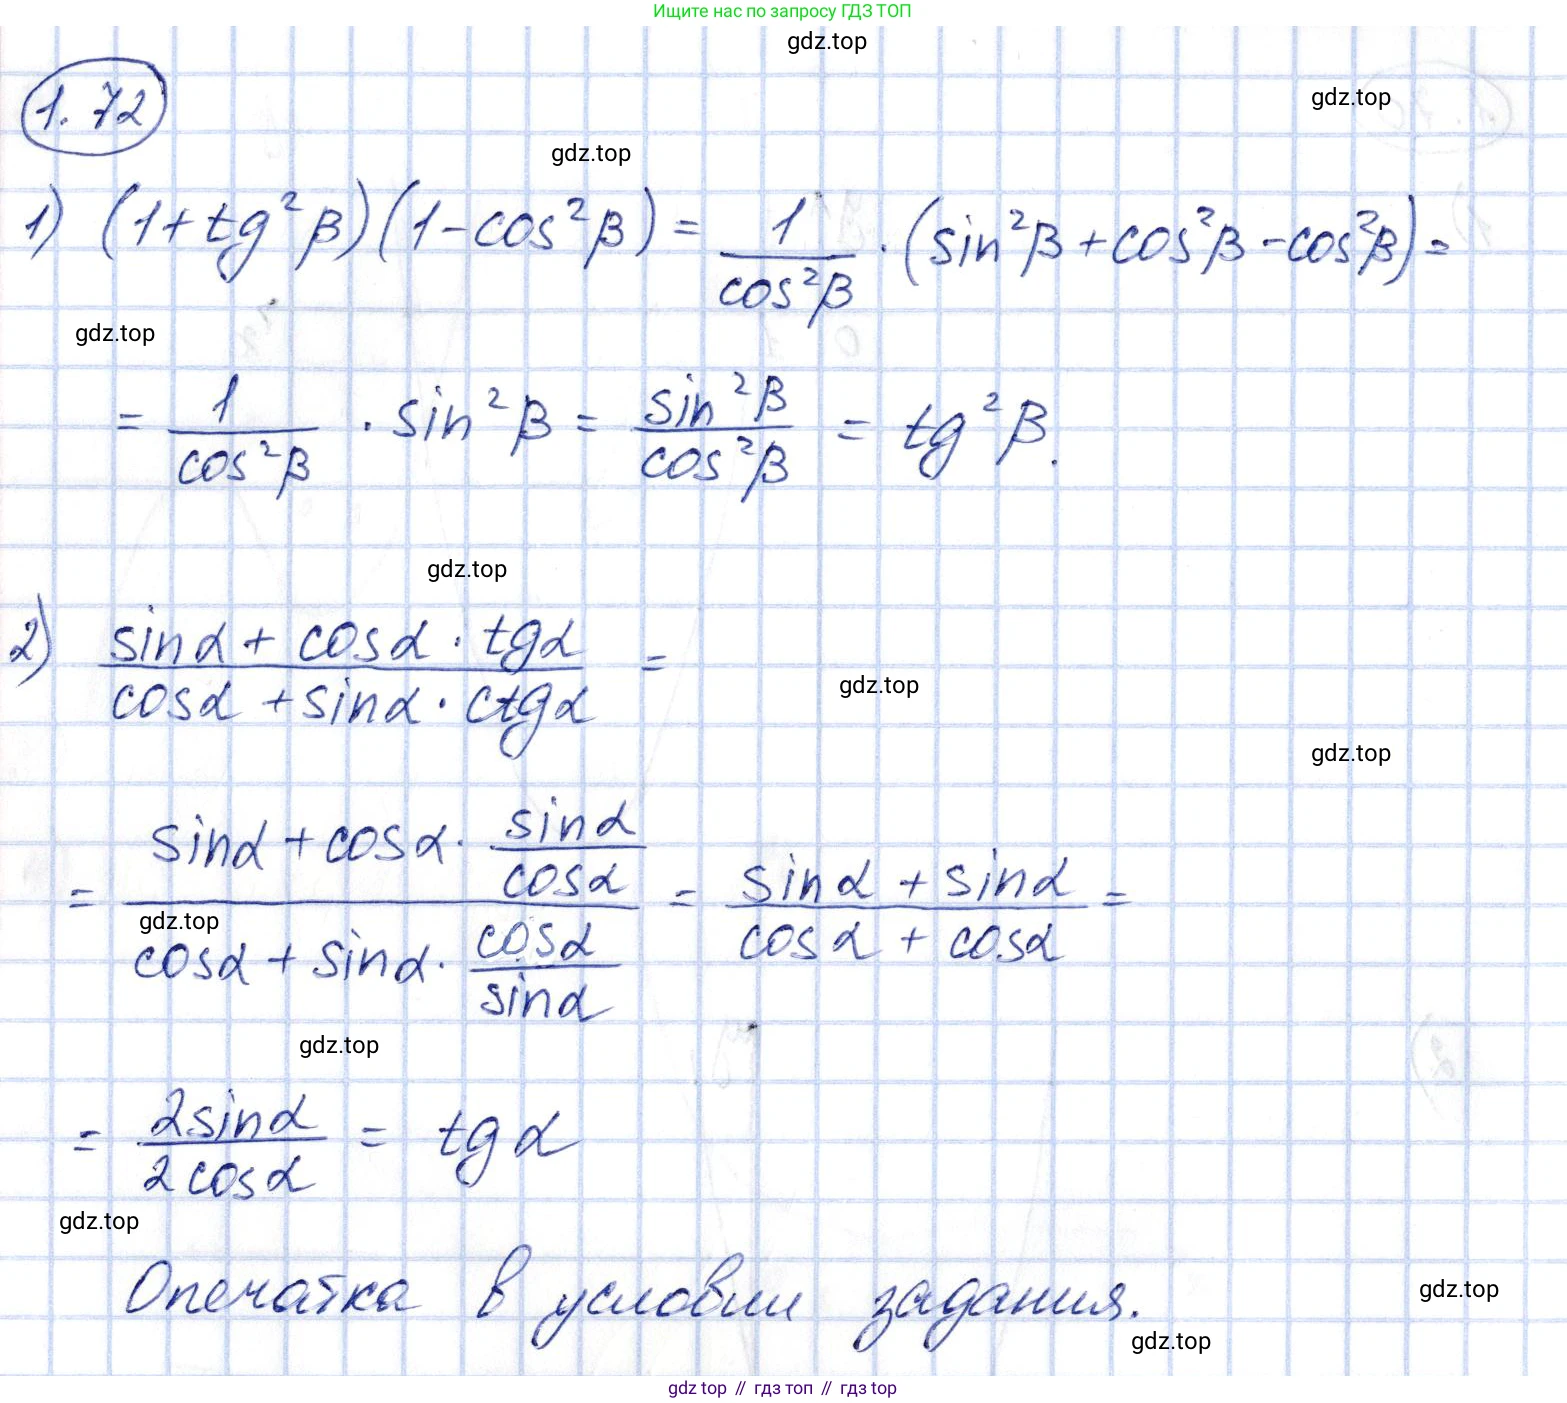 Ищите нас по запросу ГДЗ ТОП
gdz.top
1.72
gdz.top
gdz.top
1) (1+tg²β)(1-cos²β) = 1/cos²β · (sin²β + cos²β - cos²β) =
gdz.top
= 1/cos²β · sin²β = sin²β/cos²β = tg²β.
gdz.top
2) (sinα + cosα · tgα)/(cosα + sinα · ctgα) =
gdz.top
gdz.top
= (sinα + cosα · sinα/cosα)/(cosα + sinα · cosα/sinα) = (sinα + sinα)/(cosα + cosα) =
gdz.top
gdz.top
= 2sinα/2cosα = tgα
gdz.top
Опечатка в условии задания.
gdz.top
gdz.top
gdz top // гдз топ // гдз top